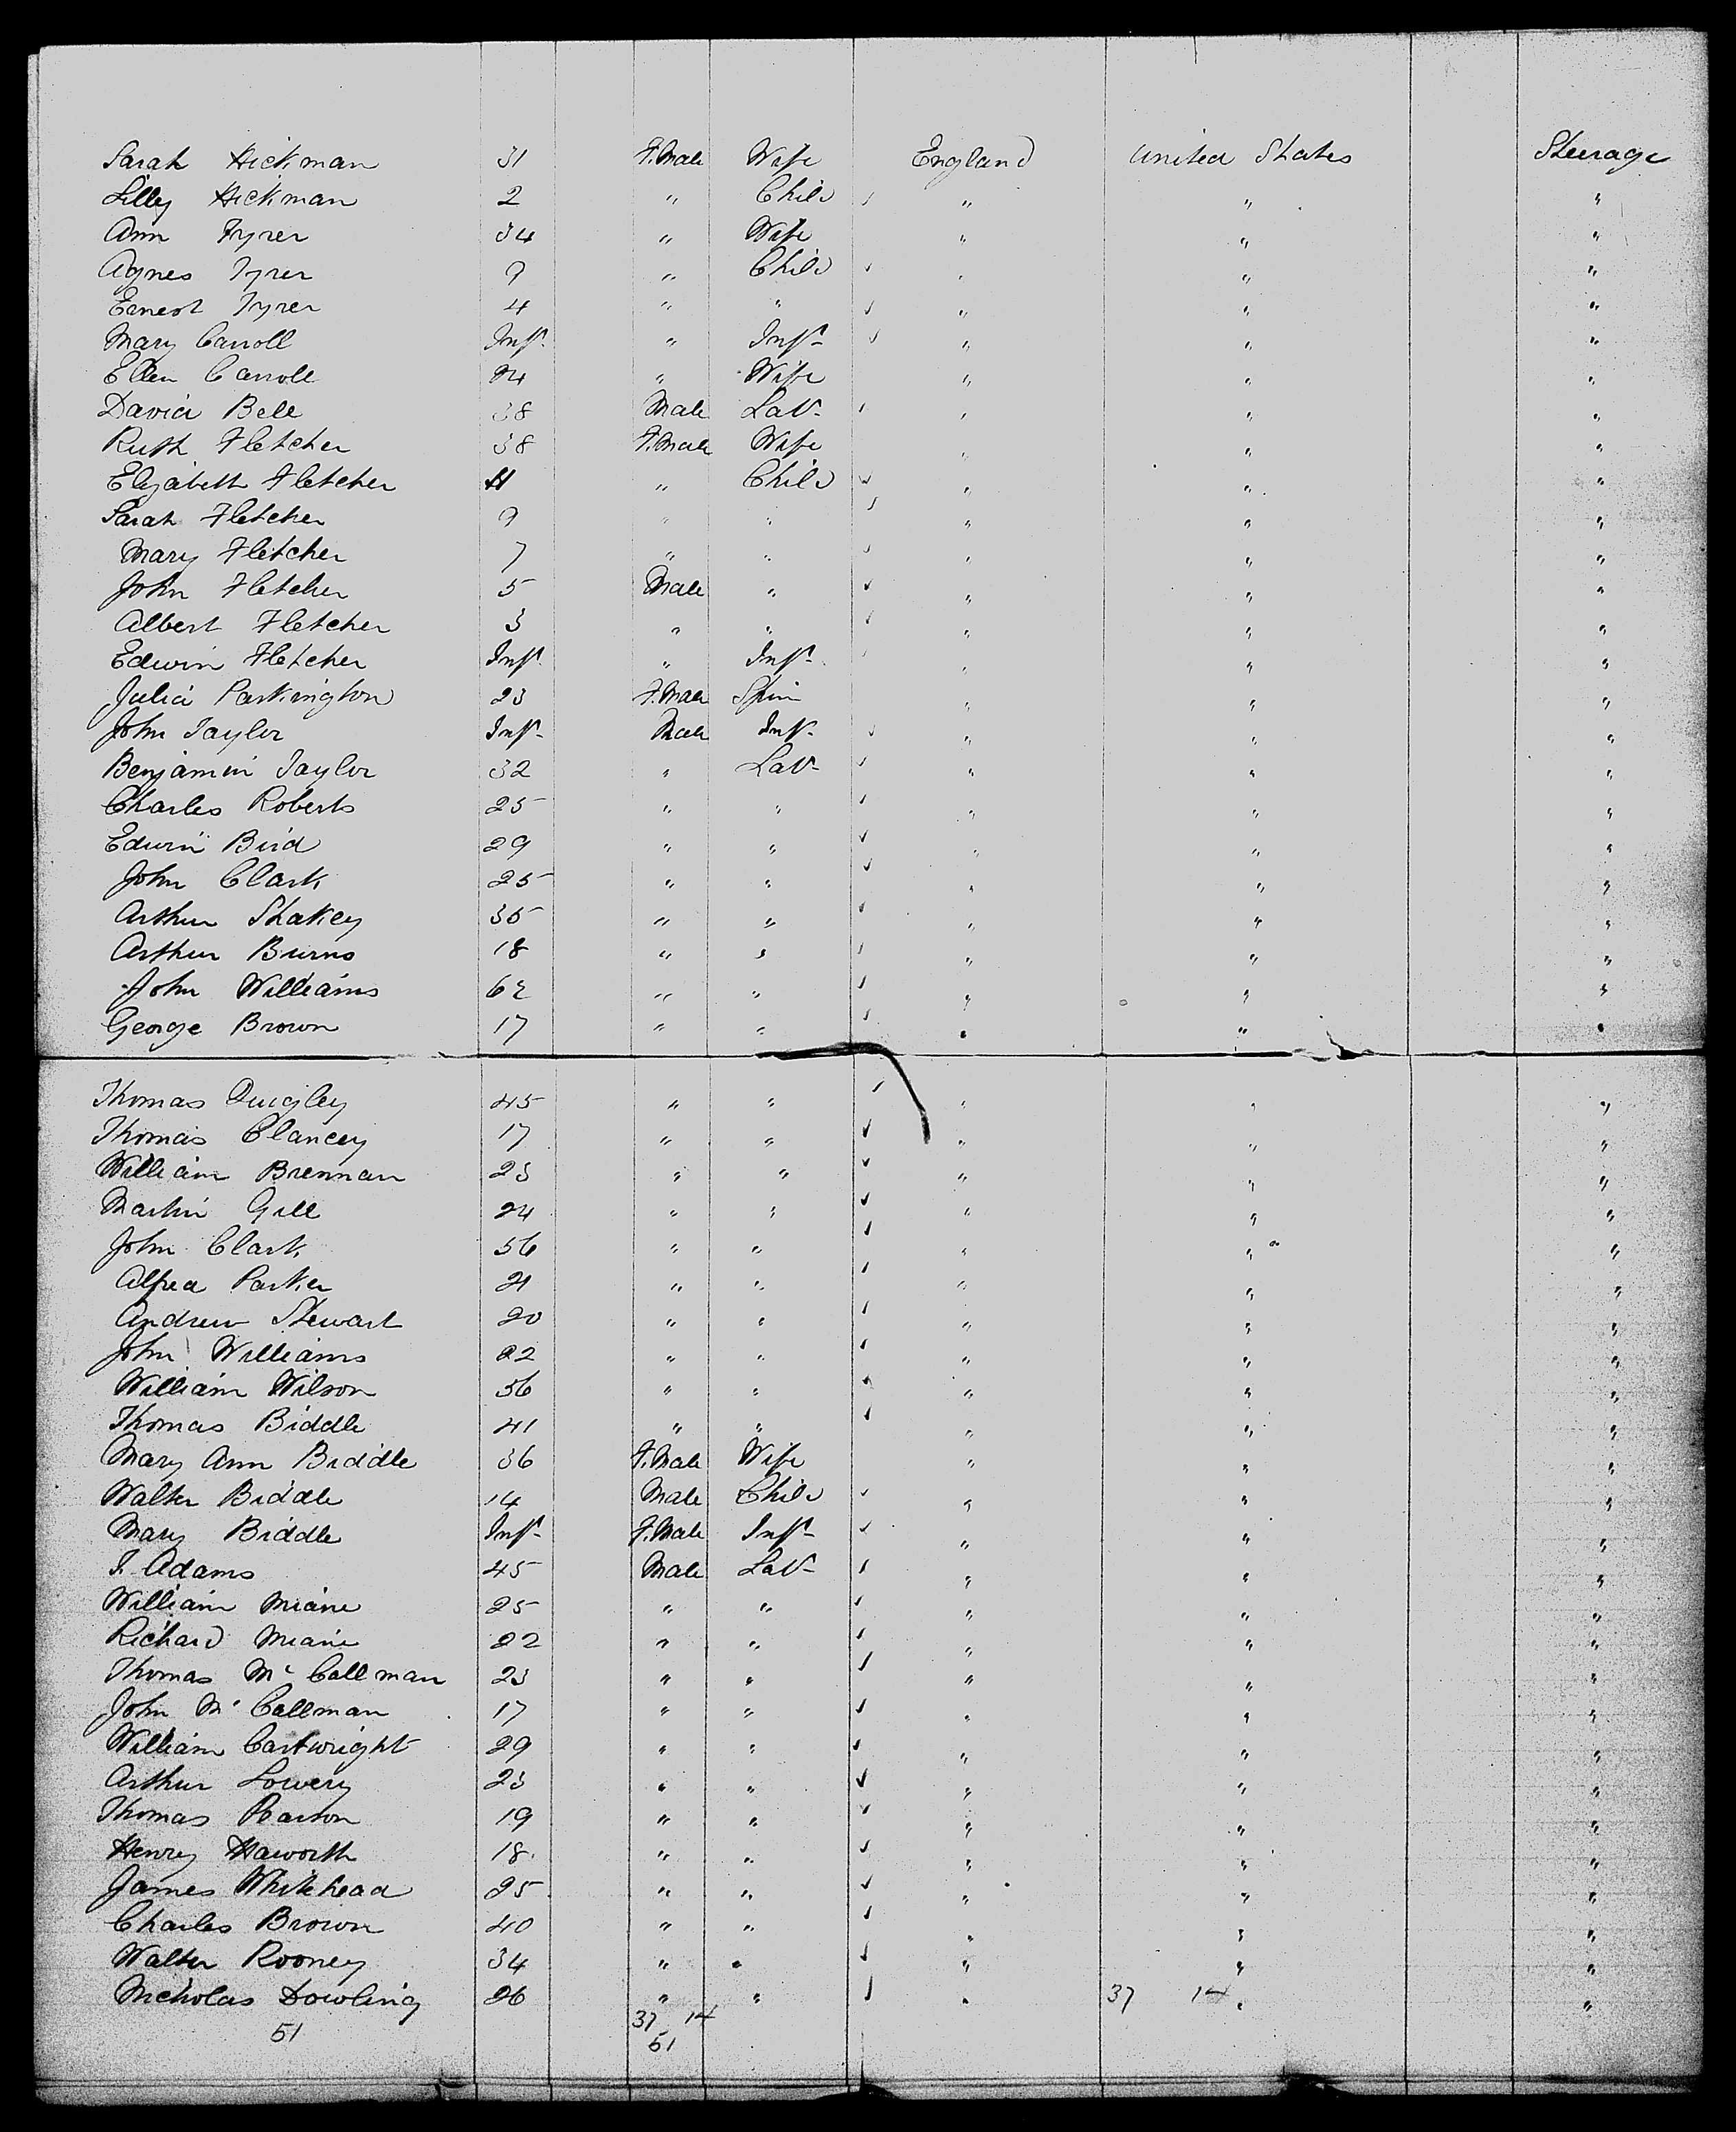 Sarah Hickman 31 F.Male Wife England United States Steerage
Lilly Hickman 2 " Child " " "
Ann Tyrer 34 " Wife " " "
Agnes Tyrer 9 " Child " " "
Ernest Tyrer 4 " " " " "
Mary Carroll Inft. " Inft. " " "
Ellen Carroll 24 " Wife " " "
David Bell 38 Male Lab. " " "
Ruth Fletcher 38 F.Male Wife " " "
Elizabeth Fletcher 11 " Child " " "
Sarah Fletcher 9 " " " " "
Mary Fletcher 7 " " " " "
John Fletcher 5 Male " " " "
Albert Fletcher 3 " " " " "
Edwin Fletcher Inft. " Inft. " " "
Julia Parkington 23 F.Male Spin " " "
John Taylor Inft. Male Inft. " " "
Benjamin Taylor 32 " Lab. " " "
Charles Roberts 25 " " " " "
Edwin Bird 29 " " " " "
John Clark 25 " " " " "
Arthur Shakey 35 " " " " "
Arthur Burns 18 " " " " "
John Williams 62 " " " " "
George Brown 17 " " " " "
Thomas Quigley 45 " " " " "
Thomas Clancey 17 " " " " "
William Brennan 23 " " " " "
Martin Gill 24 " " " " "
John Clark 56 " " " " "
Alfred Parker 21 " " " " "
Andrew Stewart 20 " " " " "
John Williams 22 " " " " "
William Wilson 56 " " " " "
Thomas Biddle 41 " " " " "
Mary Ann Biddle 36 F.Male Wife " " "
Walter Biddle 14 Male Child " " "
Mary Biddle Inft. F.Male Inft. " " "
J. Adams 45 Male Lab. " " "
William Miane 25 " " " " "
Richard Miane 22 " " " " "
Thomas Mc Callman 23 " " " " "
John Mc Callman 17 " " " " "
William Cartwright 29 " " " " "
Arthur Lowery 23 " " " " "
Thomas Pearson 19 " " " " "
Henry Haworth 18 " " " " "
James Whitehead 25 " " " " "
Charles Brown 40 " " " " "
Walter Rooney 34 " " " " "
Nicholas Dowling 26 " " " 37 14 " "
51 37 14
51